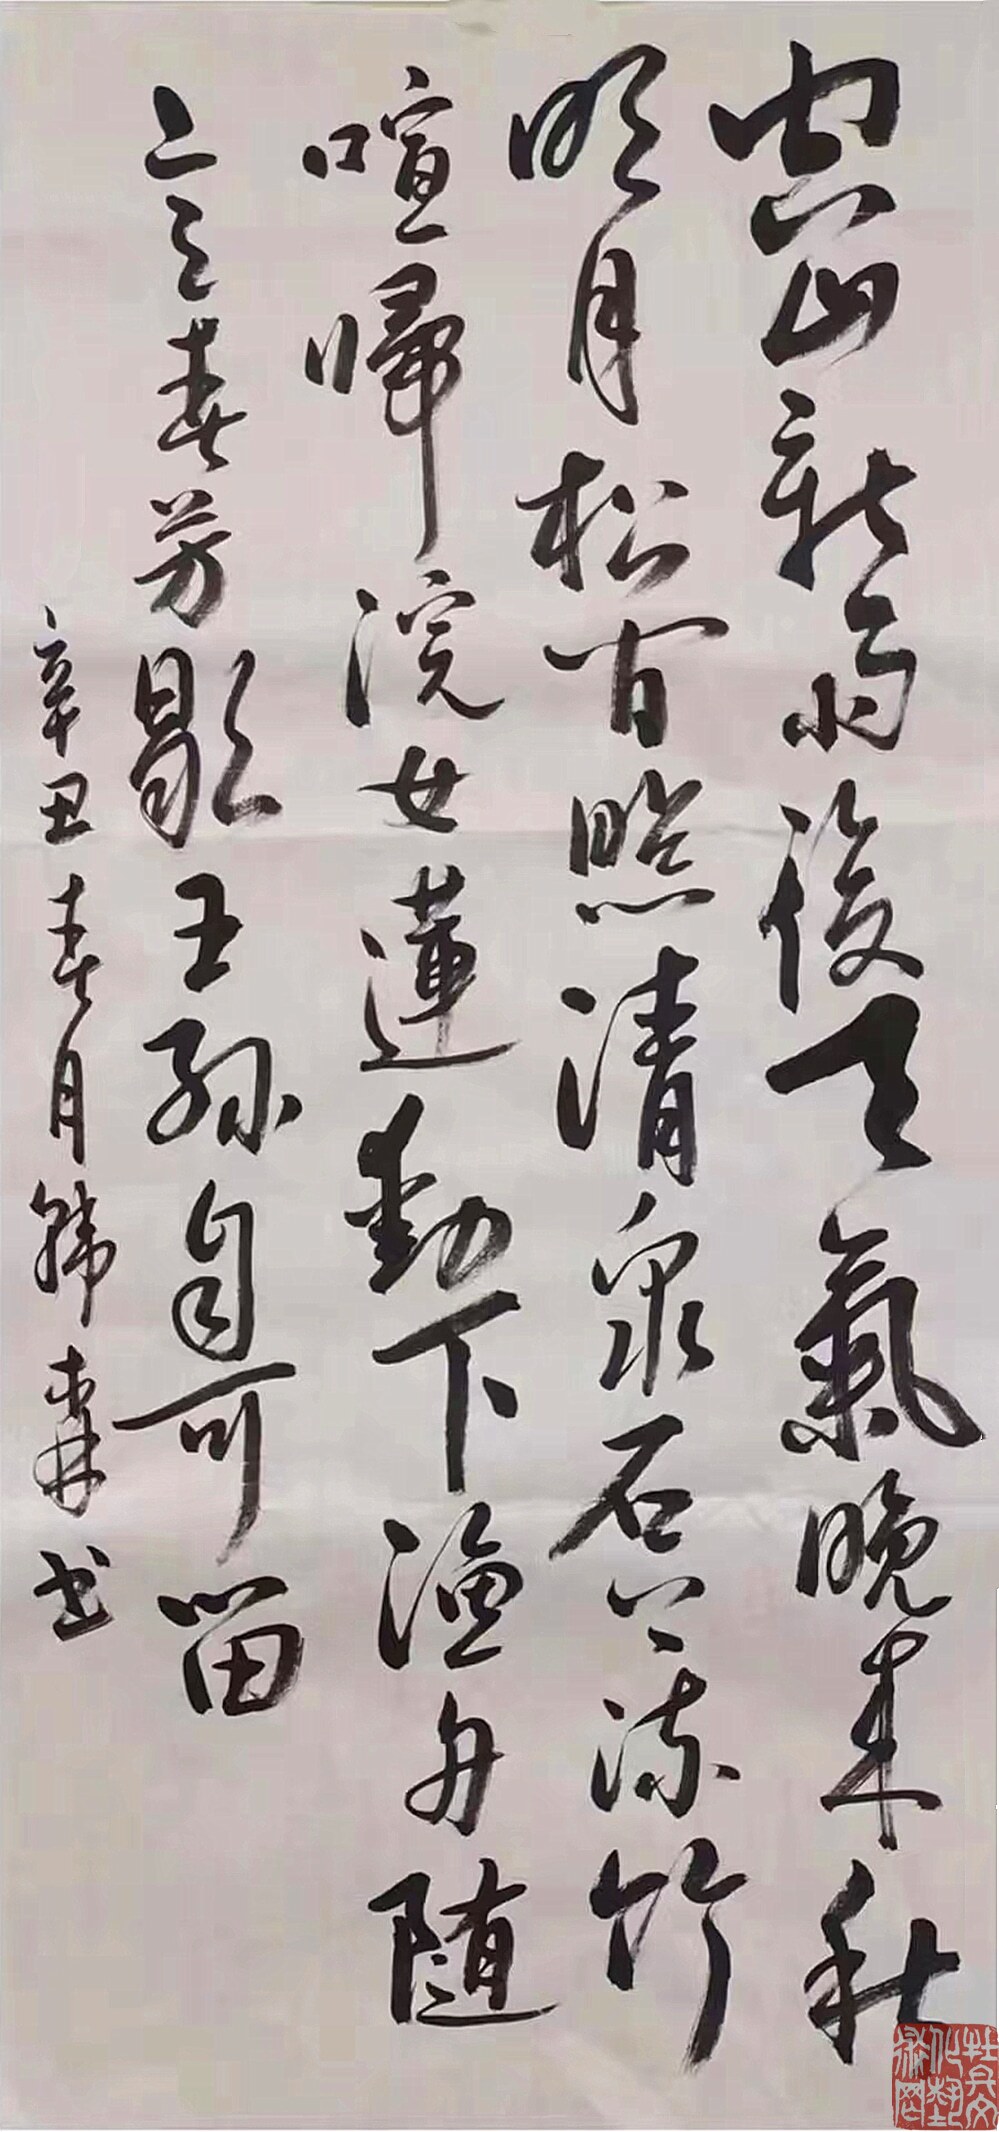 空山新雨後天氣晚来秋
明月松间照清泉石上流竹
喧歸浣女蓮動下漁舟随
意春芳歇王孫自可留
辛丑春月韩森书